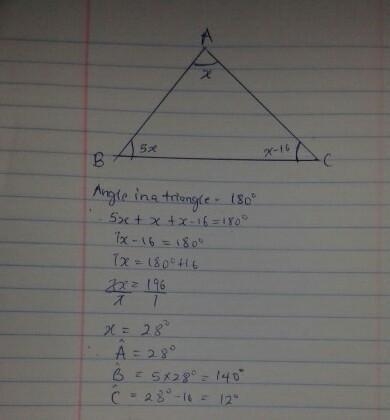 A
x
B 5x x-16 C
Angle in a triangle = 180°
∴ 5x + x + x-16 = 180°
7x - 16 = 180°
7x = 180° + 16
7x = 196
7 7
x = 28°
∴ Â = 28°
B̂ = 5×28° = 140°
Ĉ = 28° - 16 = 12°